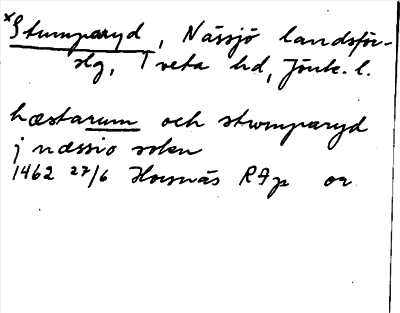 ×Stumparyd, Nässjö landsför-
slg, Tveta hd, Jönk. l.
hæstarum och stwmparyd
j næssio sokn
1462 27/6 Horsnäs RAp or